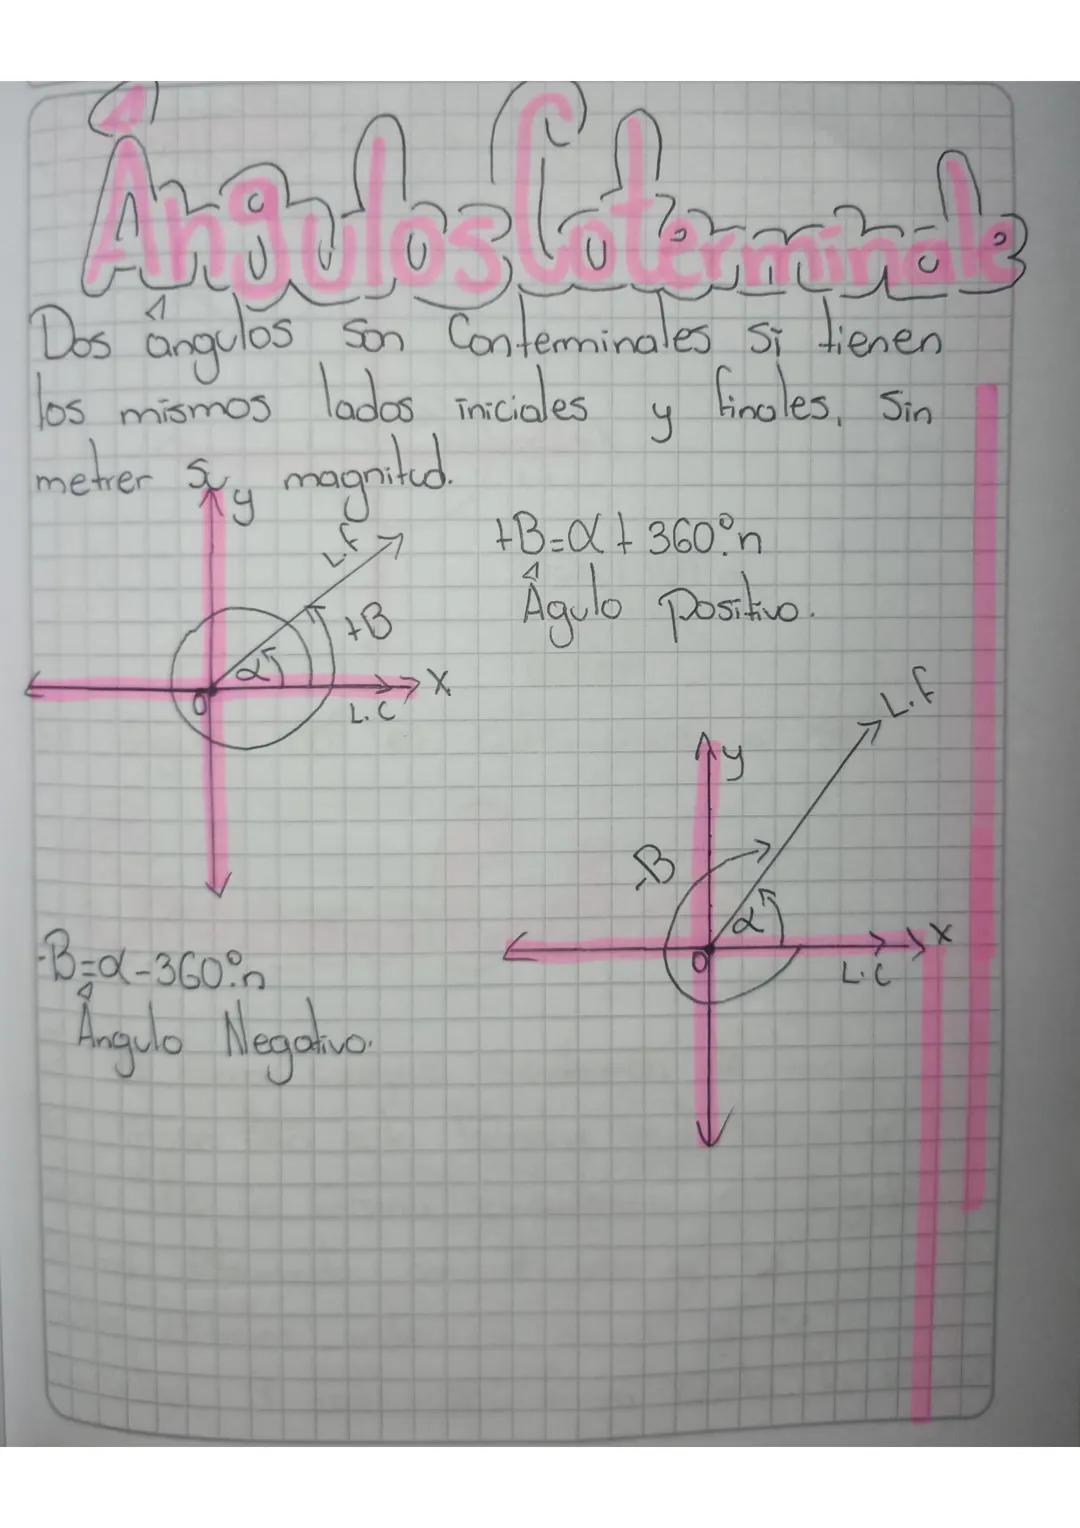 Ángulos Coterminales
Dos ángulos son Conterminales si tienen
los mismos lados iniciales y finales, sin
metrer su magnitud.
y
L.f
+B=α+360°n
Águlo Positivo.
+B
α
X
0
L.C
L.f
y
-B
α
X
0
L.C
-B=α-360°n
Ángulo Negativo.